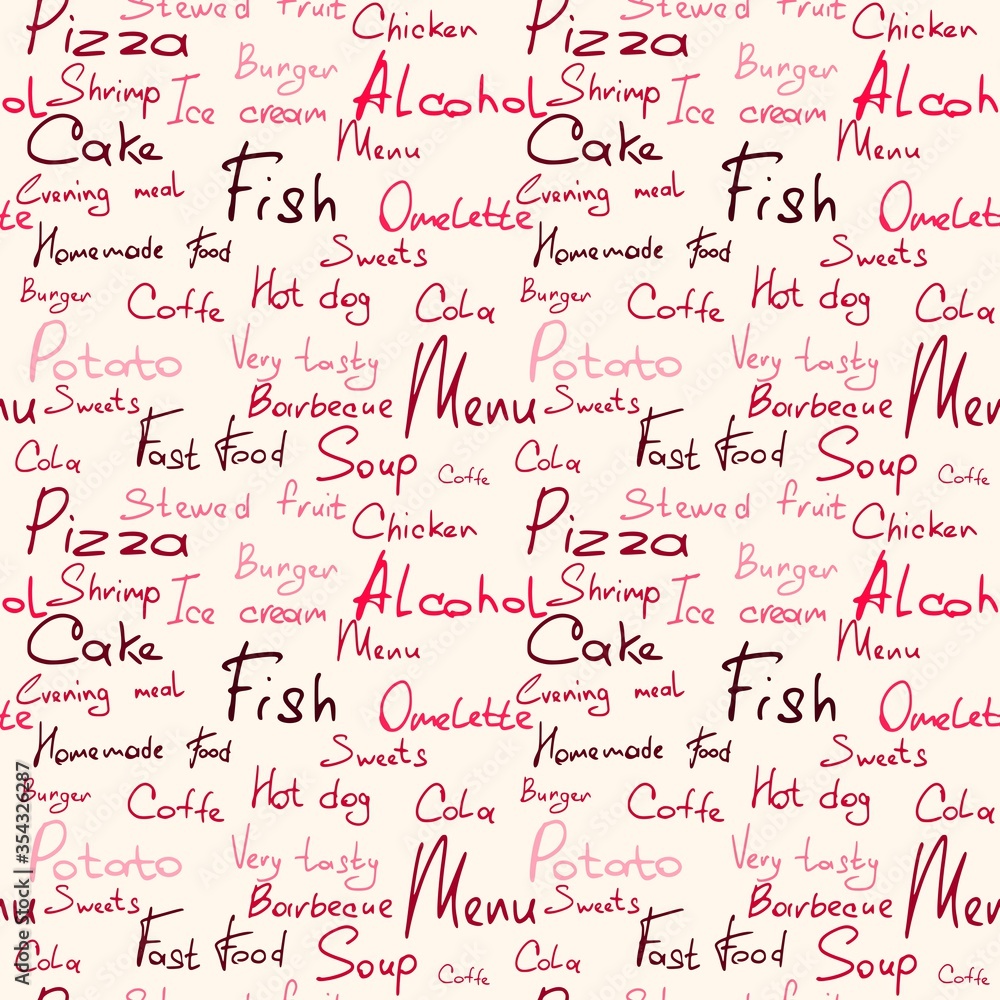 Stewed fruit Stewed fruit
Pizza Chicken Pizza Chicken
Burger Burger
ol Shrimp Ice cream Alcohol Shrimp Ice cream Alcoh
Cake Menu Cake Menu
Evening meal Fish Evening meal Fish
te Omelette Omelet
Homemade food Sweets Homemade food Sweets
Burger Coffe Hot dog Cola Burger Coffe Hot dog Cola
Potato Very tasty Potato Very tasty
nu Sweets Barbecue Menu Sweets Barbecue Men
Cola Fast Food Soup Coffe Cola Fast Food Soup Coffe
Stewed fruit Stewed fruit
Pizza Chicken Pizza Chicken
Burger Burger
ol Shrimp Ice cream Alcohol Shrimp Ice cream Alcoh
Cake Menu Cake Menu
Evening meal Fish Evening meal Fish
te Omelette Omelet
Homemade food Sweets Homemade food Sweets
Burger Coffe Hot dog Cola Burger Coffe Hot dog Cola
Potato Very tasty Potato Very tasty
nu Sweets Barbecue Menu Sweets Barbecue Men
Cola Fast Food Soup Coffe Cola Fast Food Soup Coffe
Adobe Stock | #354326287